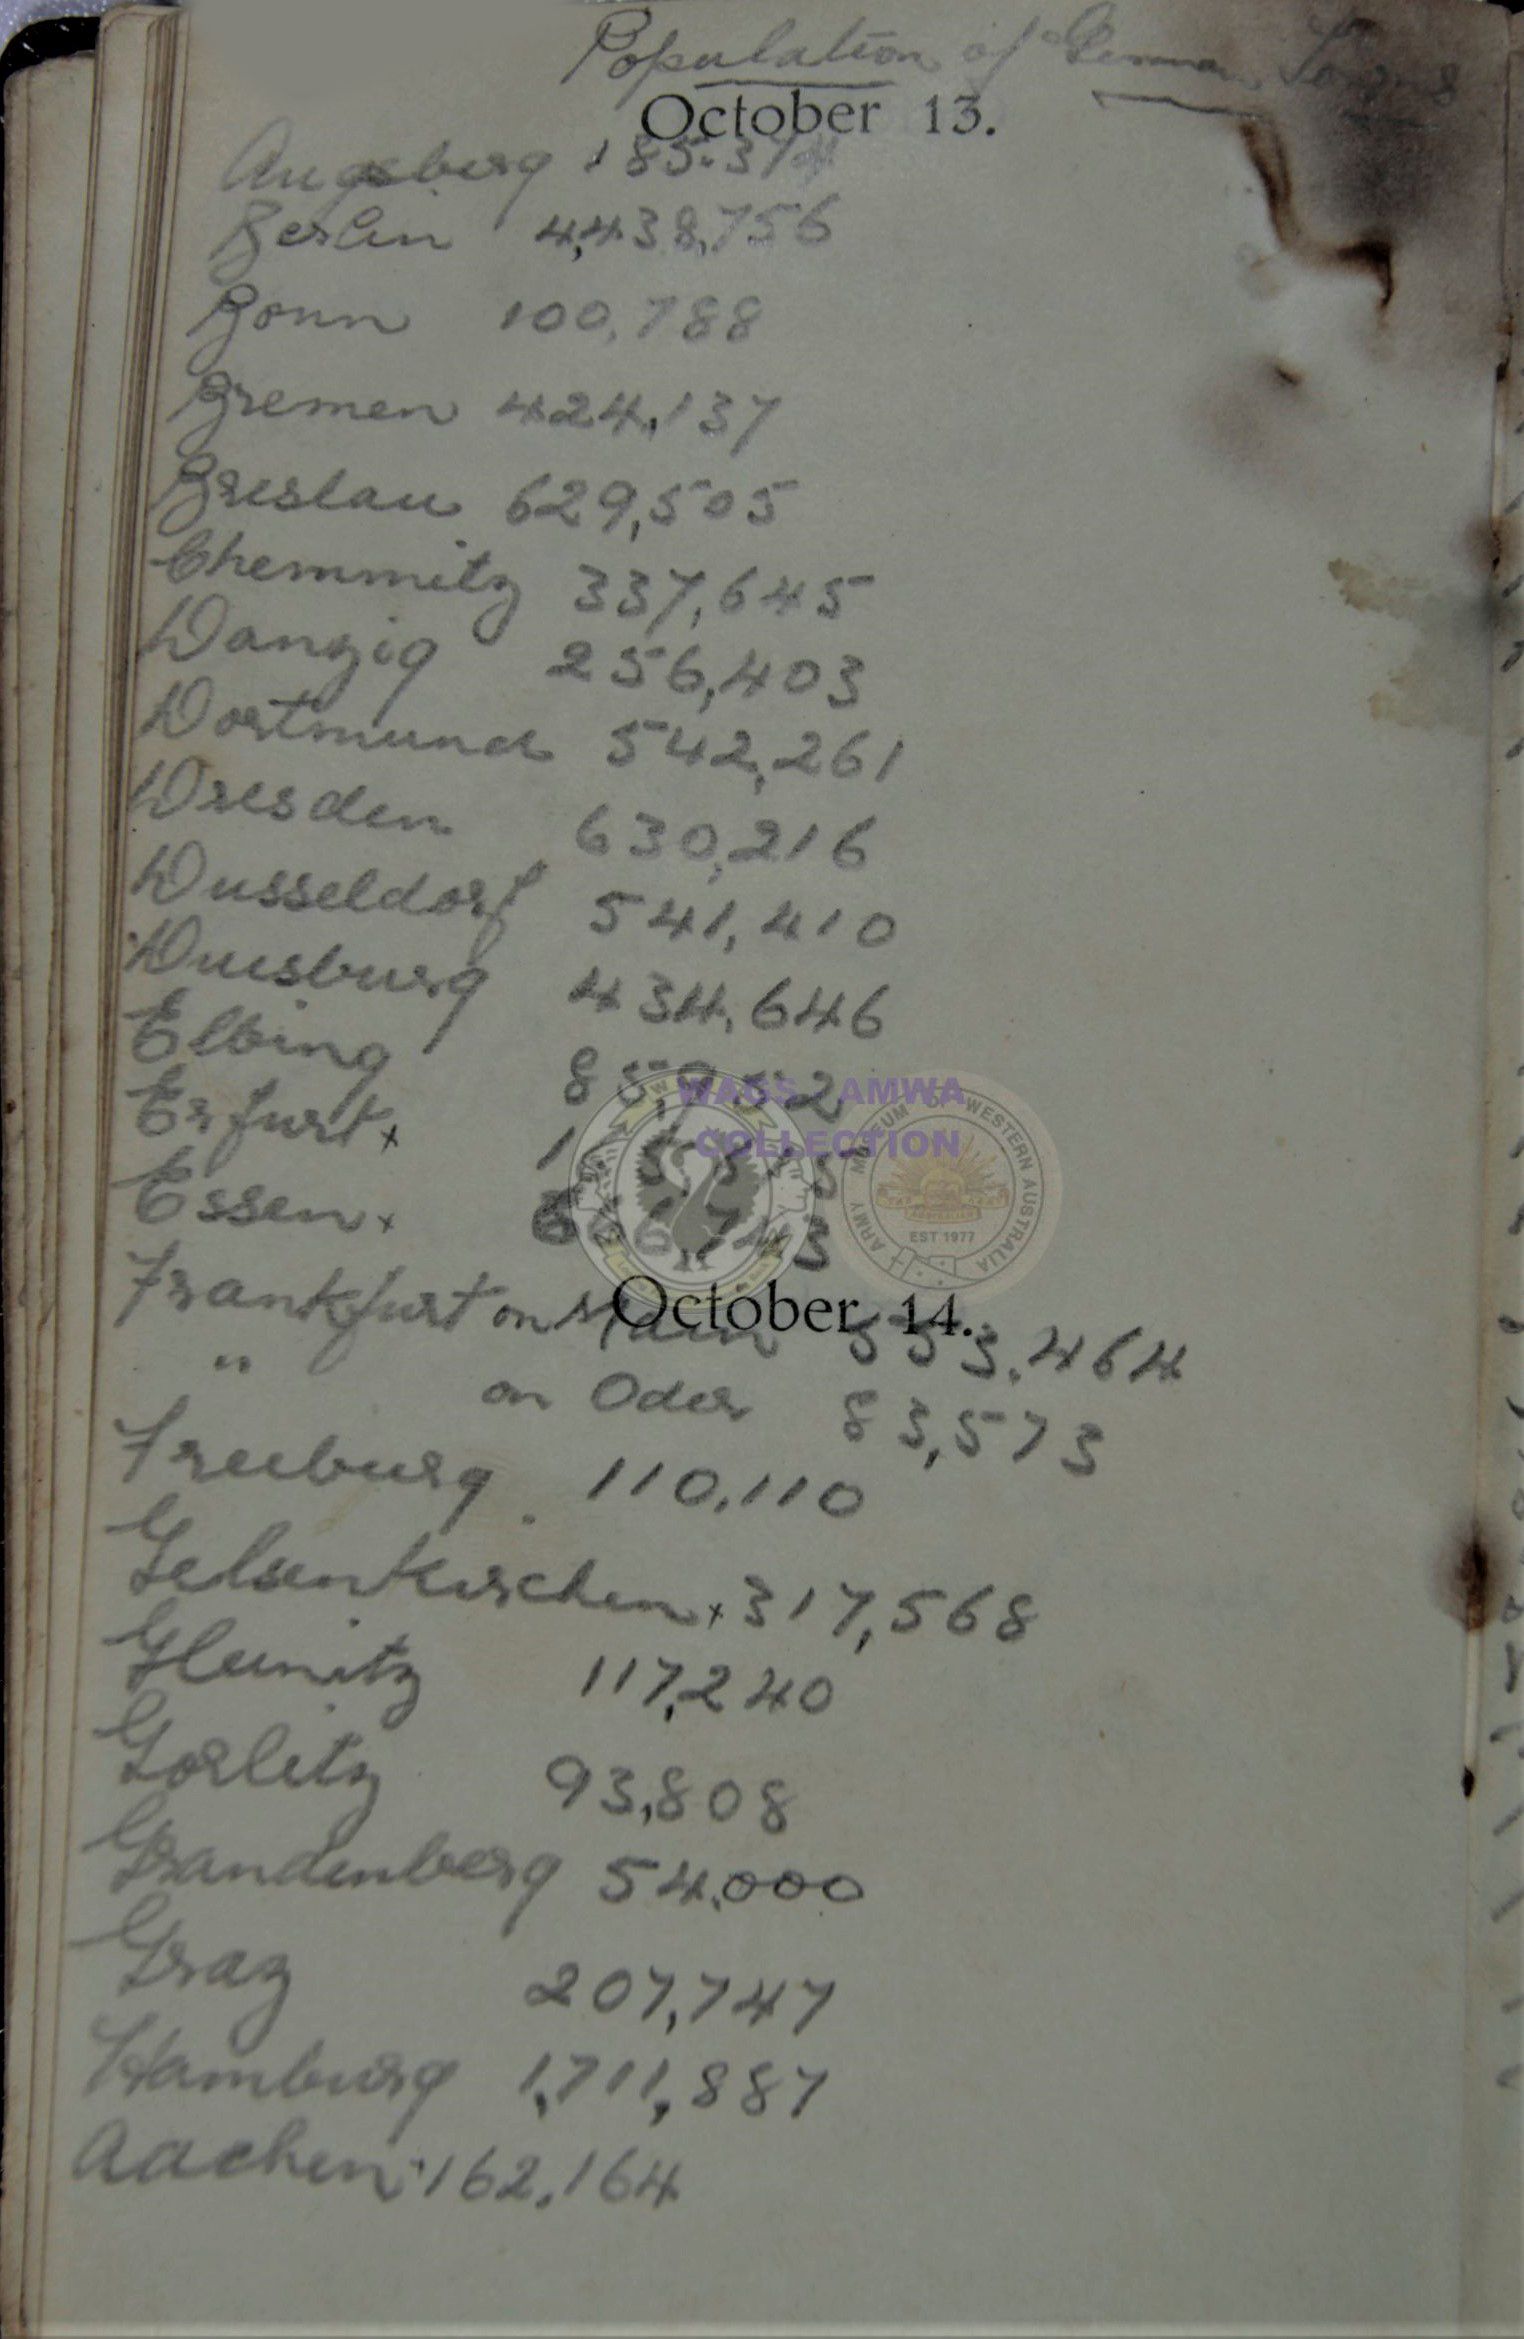 Population of German Towns
October 13.
Augsburg 185.374
Berlin 4,438,756
Bonn 100,788
Bremen 424,137
Breslau 629,505
Chemmitz 337,645
Danzig 256,403
Dortmund 542,261
Dresden 630,216
Dusseldorf 541,410
Duisburg 434,646
Elbing 85,952
Erfurt x
Essen x 666,743
Frankfurt on Main 553.464
October 14.
" on Oder 83,573
Freiburg 110,110
Gelsenkirchen x 317,568
Gleiwitz 117,240
Gorlitz 93,808
Grandenberg 54,000
Graz 207,747
Hamburg 1,711,887
Aachen 162,164
WAGS AMWA
COLLECTION
ARMY MUSEUM OF WESTERN AUSTRALIA
AUSTRALIA
EST 1977